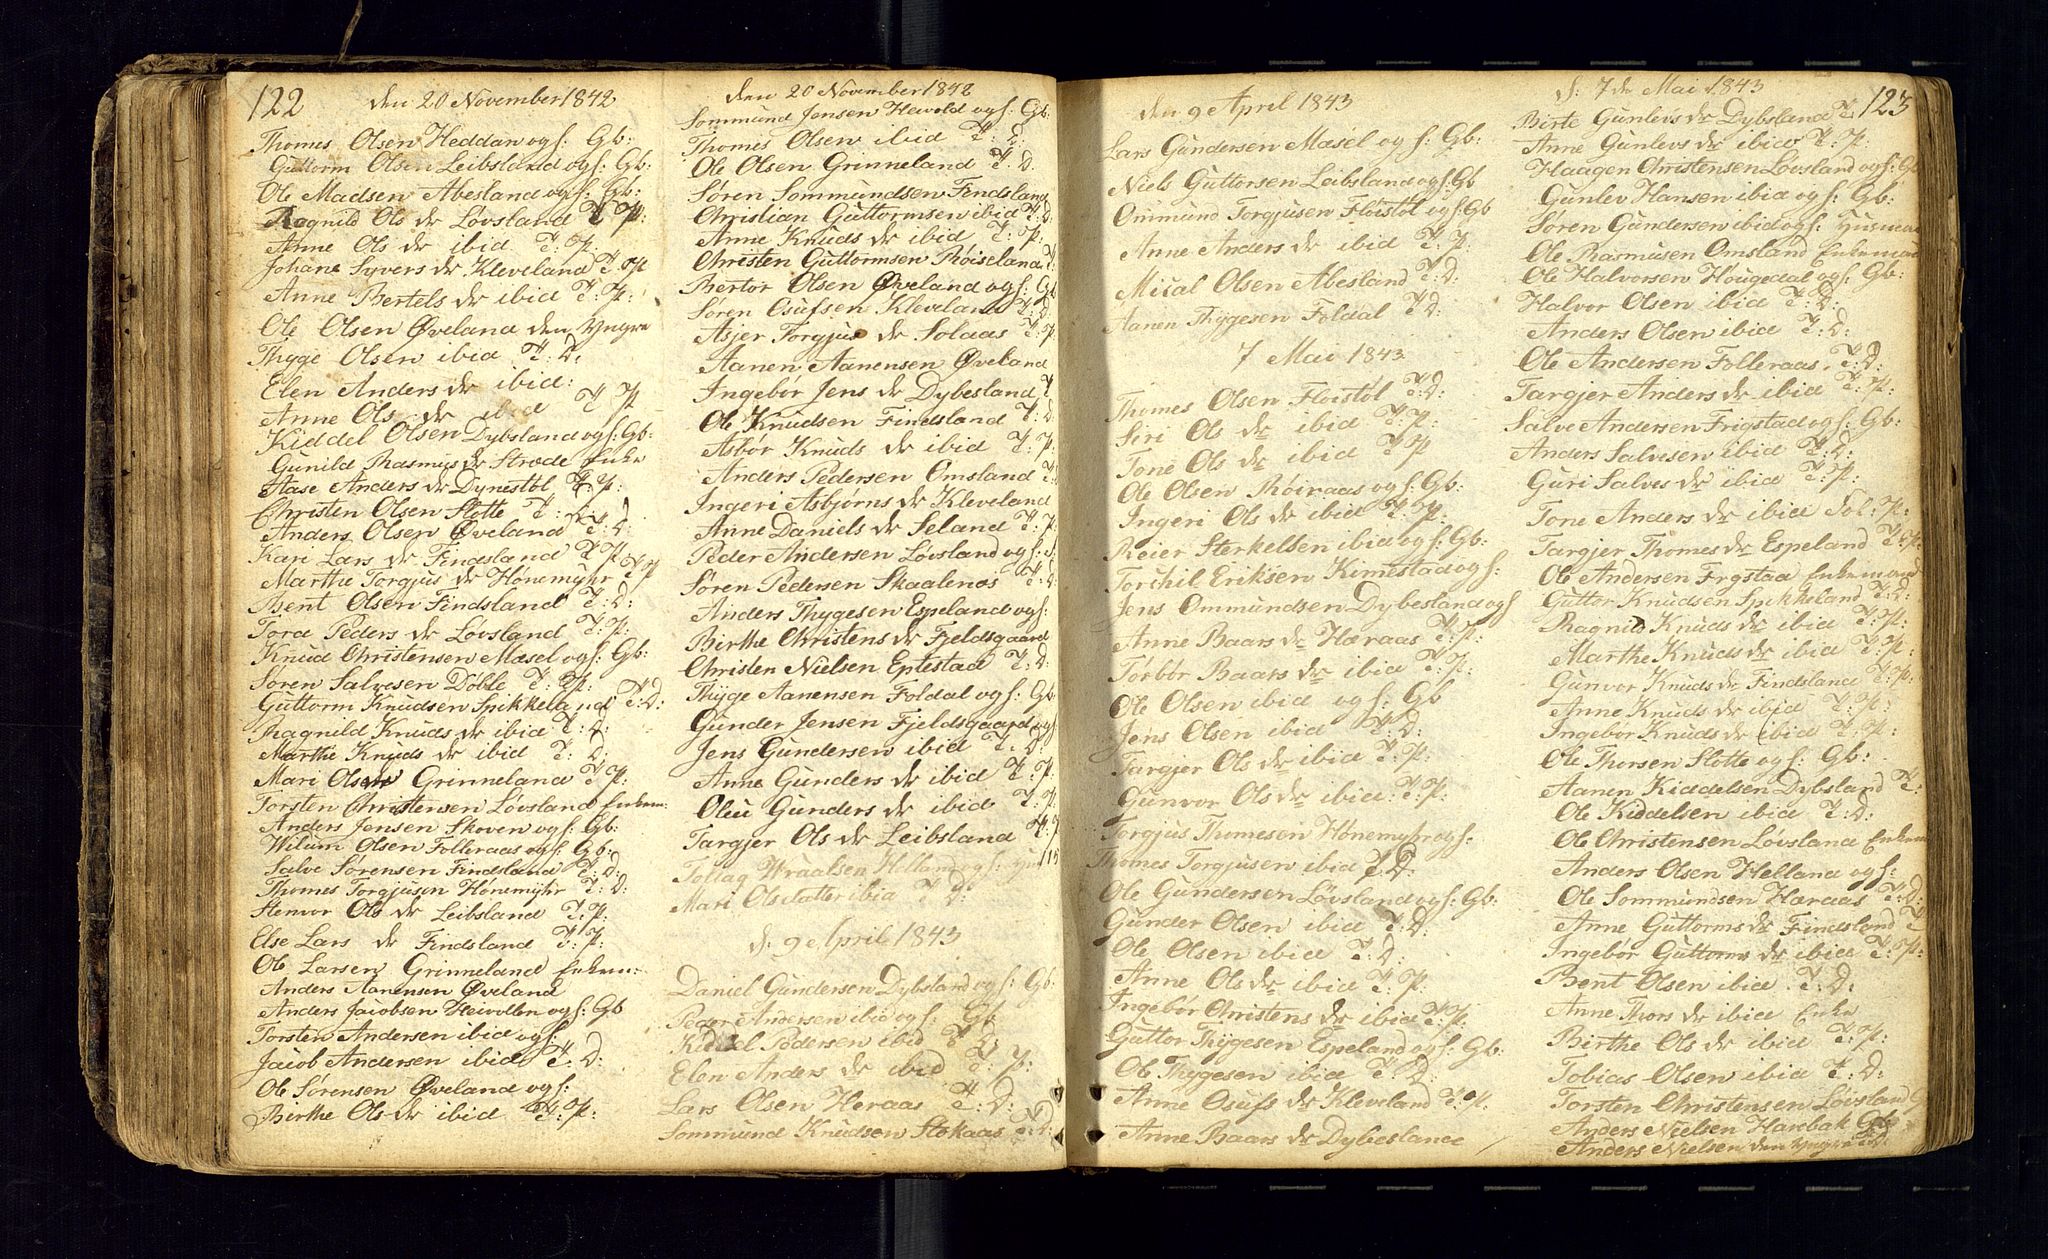 122
den 20 November 1842
Thomes Olsen Heddan og f: Gb:
Guttorm Olsen Leibsland og f: Gb:
Ole Madsen Abesland og f: Gb:
Ragnild Ols dr Løvsland T P:
Anne Ols dr ibid T: P:
Johane Syvers dr Kleveland T: P
Anne Bertels dr ibid T: P:
Ole Olsen Øveland den Yngre
Thyge Olsen ibid T: D:
Elen Anders dr ibid:
Anne Ols dr ibid T P
Kiddel Olsen Dybsland og f: Gb:
Gunild Rasmus dr Strøde Enke
Aase Anders dr Dynestøl T: P:
Christen Olsen Slotte T: D:
Anders Olsen Øveland T: D:
Kari Lars dr Findsland T P:
Marthe Torgjus dr Hønemyhr T P
Bent Olsen Findsland T: D:
Tora Peders dr Løvsland T: P:
Knud Christensen Mæsel og f: Gb:
Søren Salvesen Døble T: P:
Guttorm Knudsen Spikkeland T: D:
Ragnild Knuds dr ibid T: D:
Marthe Knuds dr ibid T: D:
Mari Olsen Grinneland T P:
Torsten Christensen Løvsland Enkem:
Anders Jensen Skoven og f: Gb:
Wilum Olsen Folleraas og f: Gb:
Salve Sørensen Findsland T: D:
Thomes Torgjusen Hønemyhr T: D:
Stenvor Ols dr Leibsland T: P:
Else Lars dr Findsland T: P:
Ole Larsen Grinneland Enkem:
Anders Aanensen Øveland
Anders Jacobsen Heivollen og f: Gb
Torsten Andersen ibid og f:
Jacob Andersen ibid T: D:
Ole Sørensen Øveland og f:
Birthe Ols dr ibid T: P:
den 20 November 1842
Sommund Jensen Hevold og f: Gb:
Thomes Olsen ibid T: D:
Ole Olsen Grinneland T: D
Søren Sommundsen Findsland
Christian Guttormsen ibid T: D:
Anne Knuds dr ibid T: P:
Christen Guttormsen Røiseland T:
Bertor Olsen Øveland og f: Gb
Søren Osufsen Kleveland T: D
Asjer Torgjus dr Solaas T: P
Aanen Aanensen Øveland
Ingebør Jens dr Dybesland T
Ole Knudsen Findsland T: D
Asbør Knuds dr ibid T: P:
Anders Pedersen Omsland T:
Ingeri Asbjørns dr Kleveland
Anne Daniels dr Seland T: P
Peder Andersen Løvsland og f:
Søren Pedersen Skaalenæs T: D
Anders Thygesen Espeland og f:
Birthe Christens dr Fjeldsgaard
Christen Nielsen Eptestad T: D:
Thyge Aanensen Foldal og f: Gb
Gunder Jensen Fjeldsgaard og f
Jens Gundersen ibid T: D
Anne Gunders dr ibid T: P
Oleu Gunders dr ibid T: P
Targjer Ols dr Leibsland T: P
Tollag Wraalsen Holland og f:
Mari Olsdatter ibid T D:
d: 9 April 1843
Daniel Gundersen Dybsland og f: Gb:
Peder Andersen ibid og f: Gb
Kiddel Pedersen ibid T D:
Elen Anders dr ibid T: P:
Lars Olsen Heraas T: D:
Sommund Knudsen Stokaas T: D:
den 9 April 1843
Lars Gundersen Mæsel og f: Gb:
Niels Guttorsen Leibsland og f: Gb
Ommund Torgjusen Fløistøl og f: Gb
Anne Anders dr ibid T: P:
Mical Olsen Abesland T: D:
Aanen Thygesen Foldal T D:
7 Mai 1843
Thomes Olsen Fløistøl T: D:
Siri Ols dr ibid T: P:
Tone Ols dr ibid T: P
Ole Olsen Røiraas og f: Gb:
Ingeri Ols dr ibid T: P:
Reier Sterkelsen ibid og f: Gb:
Torchil Eriksen Kimestad og f:
Jens Ommundsen Dybesland og f
Anne Baars dr Hæraas T: P:
Tørbør Baars dr ibid T: P:
Ole Olsen ibid og f: Gb
Jens Olsen ibid T: D:
Targjer Ols dr ibid T: P:
Gunvor Ols dr ibid T: P:
Torgjus Thomesen Hønemyhr og f:
Thomes Torgjusen ibid T: D:
Ole Gundersen Løvsland og f: Gb:
Gunder Olsen ibid T: D:
Ole Olsen ibid T: D:
Anne Ols dr ibid T: P:
Ingebør Christens dr ibid T: P:
Guttor Thygesen Espeland og f: Gb:
Ole Thygesen ibid T: D:
Anne Osufs dr Kleveland T: P:
Anne Baars dr Dybesland
123
d: 7de Mai 1843
Birte Gunlevs dr Dybsland T:
Anne Gunlevs dr ibid T: P:
Haagen Christensen Løvsland og f: Gb
Gunlev Hansen ibid og f: Gb:
Søren Gundersen ibid og f: Husman
Ole Rasmusen Omsland Enkeman
Ole Halvorsen Hougedal og f: Gb:
Halvor Olsen ibid T: D:
Anders Olsen ibid T: D:
Ole Andersen Folleraas T: D:
Targjer Anders dr ibid T: P:
Salve Andersen Frigstad og f: Gb:
Anders Salvesen ibid T: D:
Guri Salves dr ibid T: P:
Tone Anders dr ibid Sol: P:
Targjer Thomes dr Espeland T: P:
Ole Andersen Frgstad Enkemand
Guttor Knudsen Spikkeland T: D:
Ragnild Knuds dr ibid T: P:
Marthe Knuds dr ibid T: P:
Gunvor Knuds dr Findsland T: P:
Anne Knuds dr ibid T: P:
Ingebør Knuds dr ibid T: P:
Ole Thorsen Slotte og f: Gb:
Aanen Kiddelsen Dybsland T:
Ole Kiddelsen ibid T: D:
Ole Christensen Løvsland Enkem
Anders Olsen Helland og f:
Ole Sommundsen Hæraas T: D:
Anne Guttorms dr Findsland T
Ingebør Guttorms dr ibid T: P:
Bent Olsen ibid T: D:
Anne Thors dr ibid Enke
Birthe Ols dr ibid T: P:
Tobias Olsen ibid T: D:
Torsten Christensen Løvsland G
Anders Nielsen Harebak Gb
Anders Nielsen den Yngre ibid